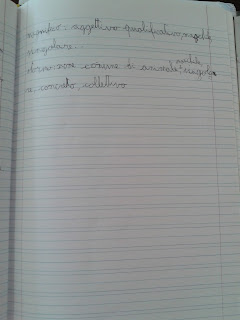 : aggettivo qualificativo, maschile,
singolare.
nome comune di animale, maschile, singola-
re, concreto, collettivo